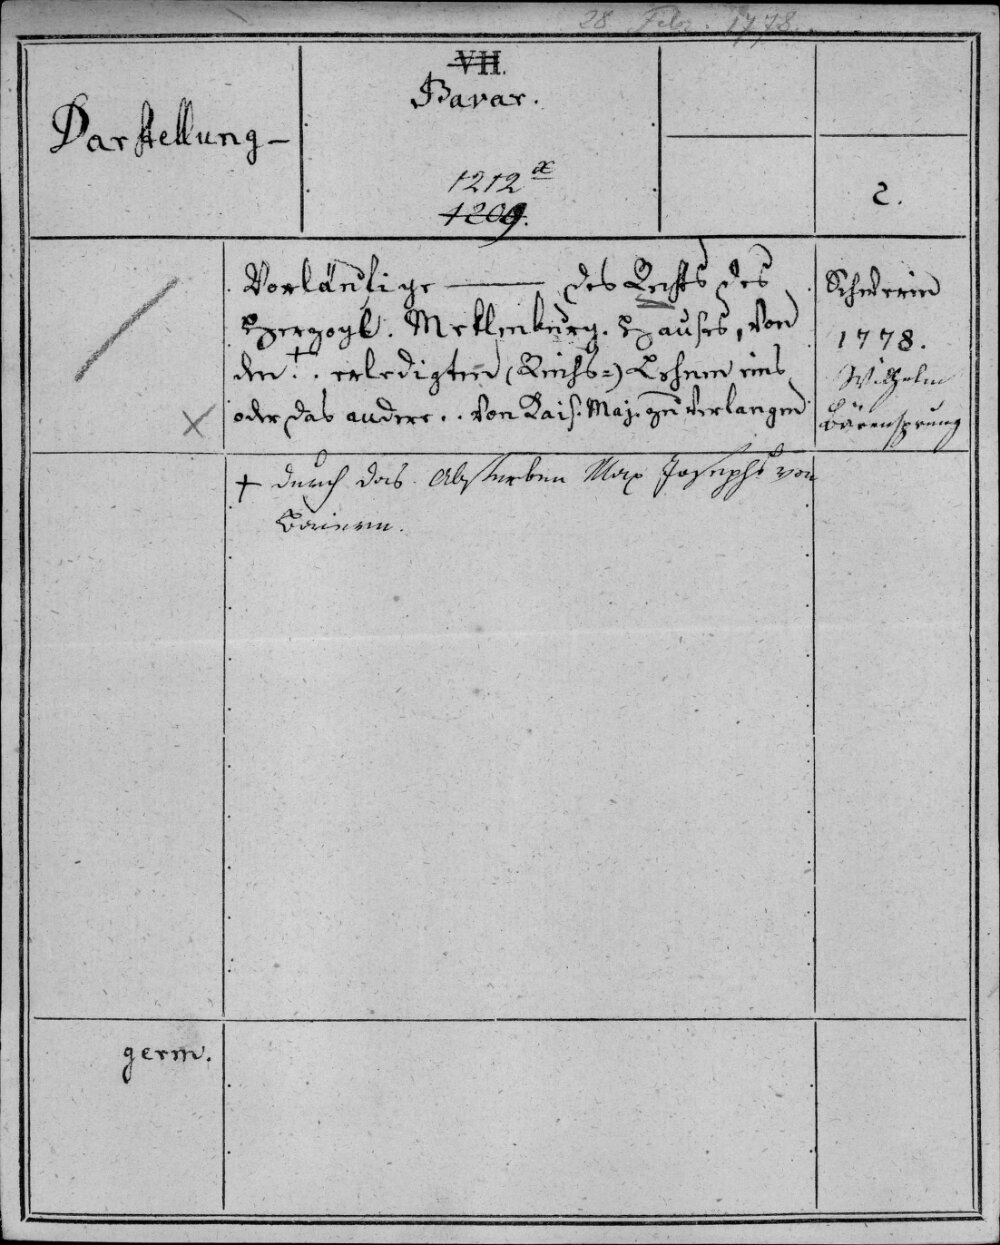 28 Febr. 1778.
VII.
Bavar.
Darstellung –
1212 x
1209.
2.
Vorläufige —— des Rechts des
Herzogl. Meklenburg. Hauses, von
den + . . erledigten (Reichs-) Lehnen eins
oder das andere . . von Kais. Maj. zu verlangen
Schwerin
1778.
Wilhelm
Bärensprung
+ durch das Absterben Max Josephs von
Baiern.
germ.